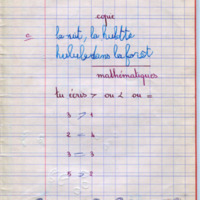 coque
la nuit, la hulotte
hulule dans la forêt
mathématiques
tu écris > ou < ou =
3 > 1
2 4
3 3
5 > 2